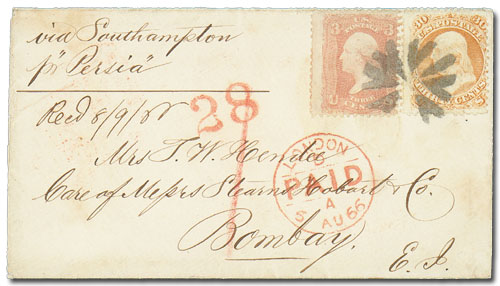 via Southampton
pr "Persia"
Recd 8/9/66
28
Mrs T. W. Hender
Care of Messrs Stearns Hobart & Co.
Bombay.
E. I.
LONDON
PAID
5 AU 66
3
3
30
30
U.S. POSTAGE